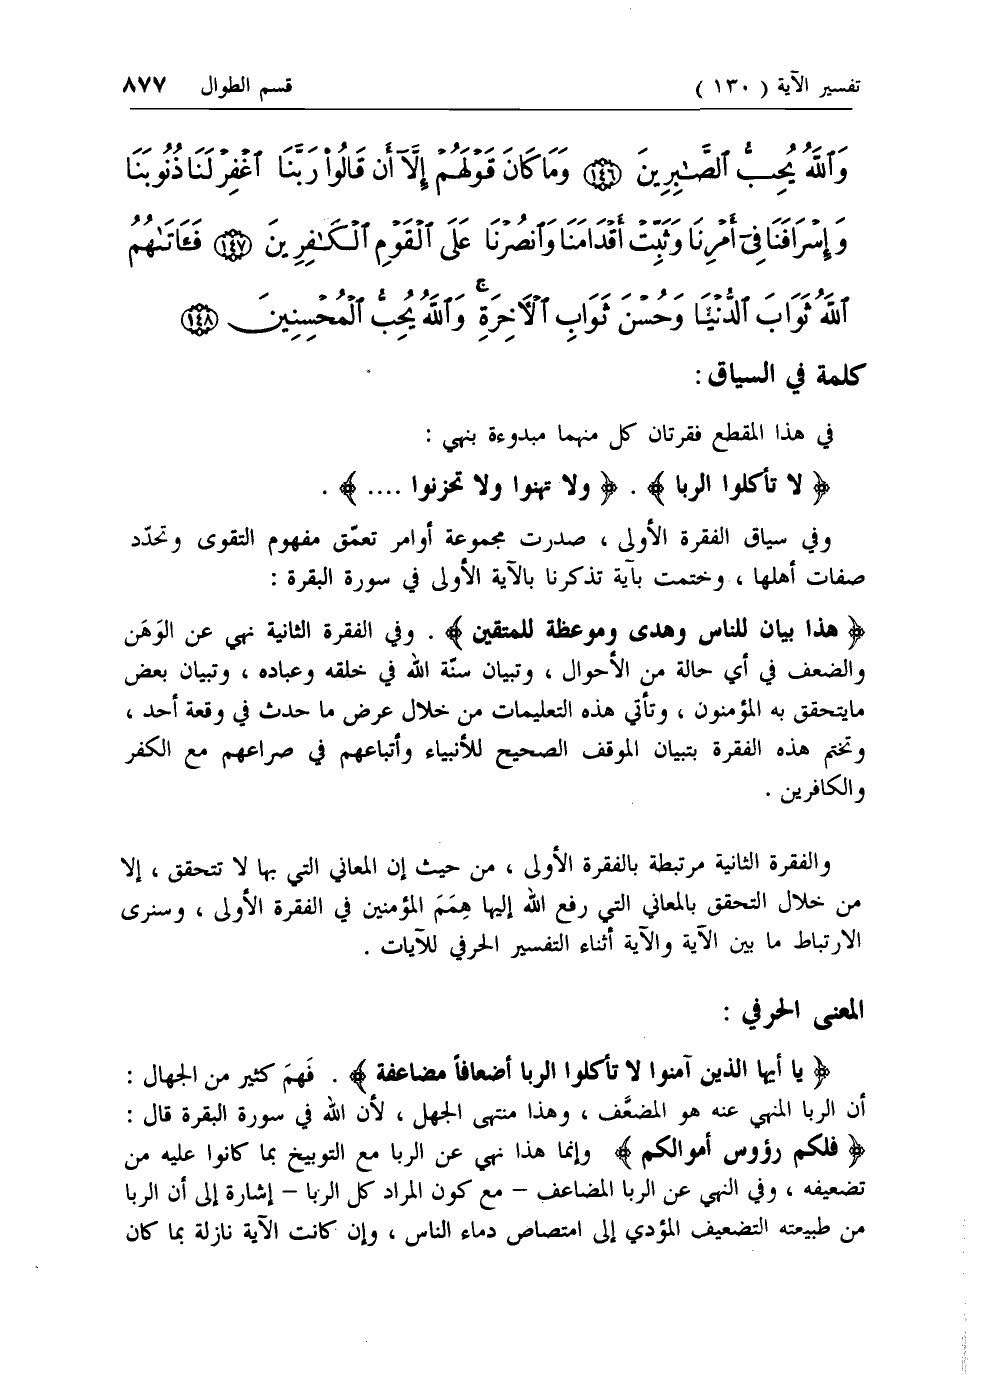 تفسير الآية ( ١٣٠ ) قسم الطوال ٨٧٧
وَٱللَّهُ يُحِبُّ ٱلصَّٰبِرِينَ ١٤٦ وَمَا كَانَ قَوْلَهُمْ إِلَّآ أَن قَالُوا۟ رَبَّنَا ٱغْفِرْ لَنَا ذُنُوبَنَا
وَإِسْرَافَنَا فِىٓ أَمْرِنَا وَثَبِّتْ أَقْدَامَنَا وَٱنصُرْنَا عَلَى ٱلْقَوْمِ ٱلْكَٰفِرِينَ ١٤٧ فَـَٔاتَىٰهُمُ
ٱللَّهُ ثَوَابَ ٱلدُّنْيَا وَحُسْنَ ثَوَابِ ٱلْـَٔاخِرَةِ ۗ وَٱللَّهُ يُحِبُّ ٱلْمُحْسِنِينَ ١٤٨
كلمة في السياق :
في هذا المقطع فقرتان كل منهما مبدوءة بنهي :
﴿ لا تأكلوا الربا ﴾ . ﴿ ولا تهنوا ولا تحزنوا .... ﴾ .
وفي سياق الفقرة الأولى ، صدرت مجموعة أوامر تعمّق مفهوم التقوى وتحدّد
صفات أهلها ، وختمت بآية تذكرنا بالآية الأولى في سورة البقرة :
﴿ هذا بيان للناس وهدى وموعظة للمتقين ﴾ . وفي الفقرة الثانية نهي عن الوَهَن
والضعف في أي حالة من الأحوال ، وتبيان سنّة الله في خلقه وعباده ، وتبيان بعض
مايتحقق به المؤمنون ، وتأتي هذه التعليمات من خلال عرض ما حدث في وقعة أحد ،
وتختم هذه الفقرة بتبيان الموقف الصحيح للأنبياء وأتباعهم في صراعهم مع الكفر
والكافرين .
والفقرة الثانية مرتبطة بالفقرة الأولى ، من حيث إن المعاني التي بها لا تتحقق ، إلا
من خلال التحقق بالمعاني التي رفع الله إليها هِمَمَ المؤمنين في الفقرة الأولى ، وسنرى
الارتباط ما بين الآية والآية أثناء التفسير الحرفي للآيات .
المعنى الحرفي :
﴿ يا أيها الذين آمنوا لا تأكلوا الربا أضعافاً مضاعفة ﴾ . فَهِمَ كثير من الجهال :
أن الربا المنهي عنه هو المضعَّف ، وهذا منتهى الجهل ، لأن الله في سورة البقرة قال :
﴿ فلكم رؤوس أموالكم ﴾ وإنما هذا نهي عن الربا مع التوبيخ بما كانوا عليه من
تضعيفه ، وفي النهي عن الربا المضاعف – مع كون المراد كل الربا – إشارة إلى أن الربا
من طبيعته التضعيف المؤدي إلى امتصاص دماء الناس ، وإن كانت الآية نازلة بما كان